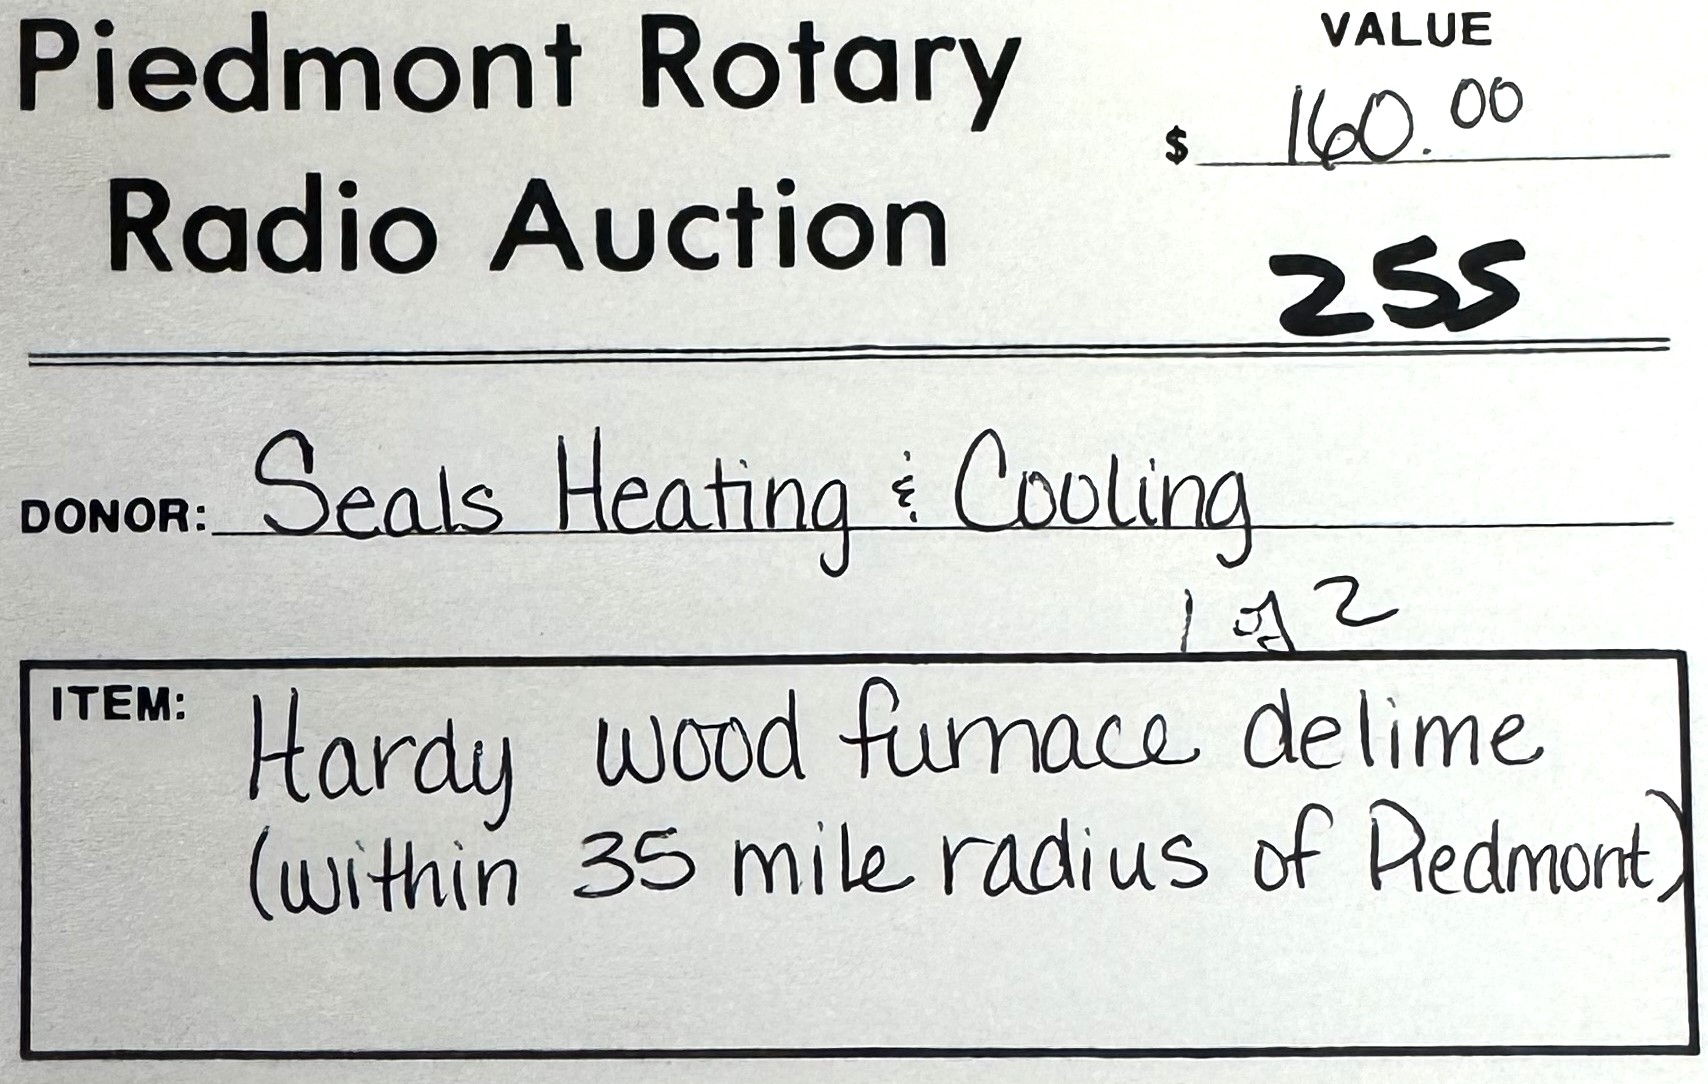 Piedmont Rotary
Radio Auction
VALUE
$ 160.00
255
DONOR: Seals Heating & Cooling
1 of 2
ITEM: Hardy wood furnace delime
(within 35 mile radius of Piedmont)